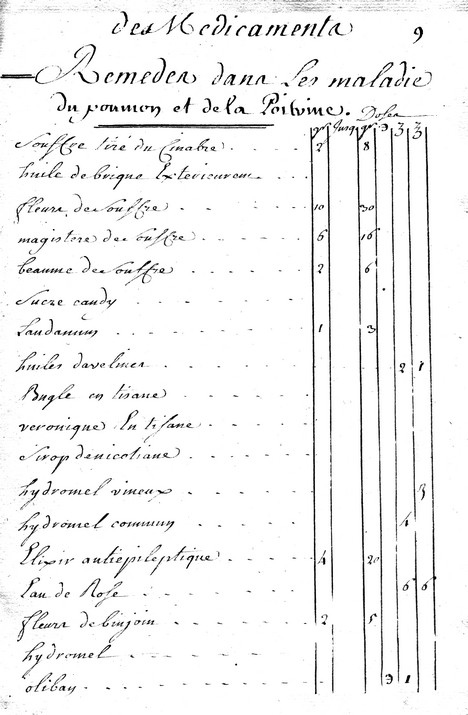 des Medicaments 9
Remedes dans les maladie
du poumon et de la Poitrine. Doses
gr Jusq gr ℈ ʒ ℥
Souffre tiré du Cinabre 2 8
huile de brique Exterieurem
fleurs de souffre 10 30
magistere de souffre 6 16
beaume de souffre 2 6
Sucre candy
Laudanum 1 3
huiles davelines 2 1
Bugle en tisane
veronique En tisane
Sirop de nicotiane
hydromel vineux 3
hydromel commun 4
Elixir antiepileptique 4 20
Eau de Rose 6 6
fleurs de binjoin 2 5
hydromel
oliban ℈ 1